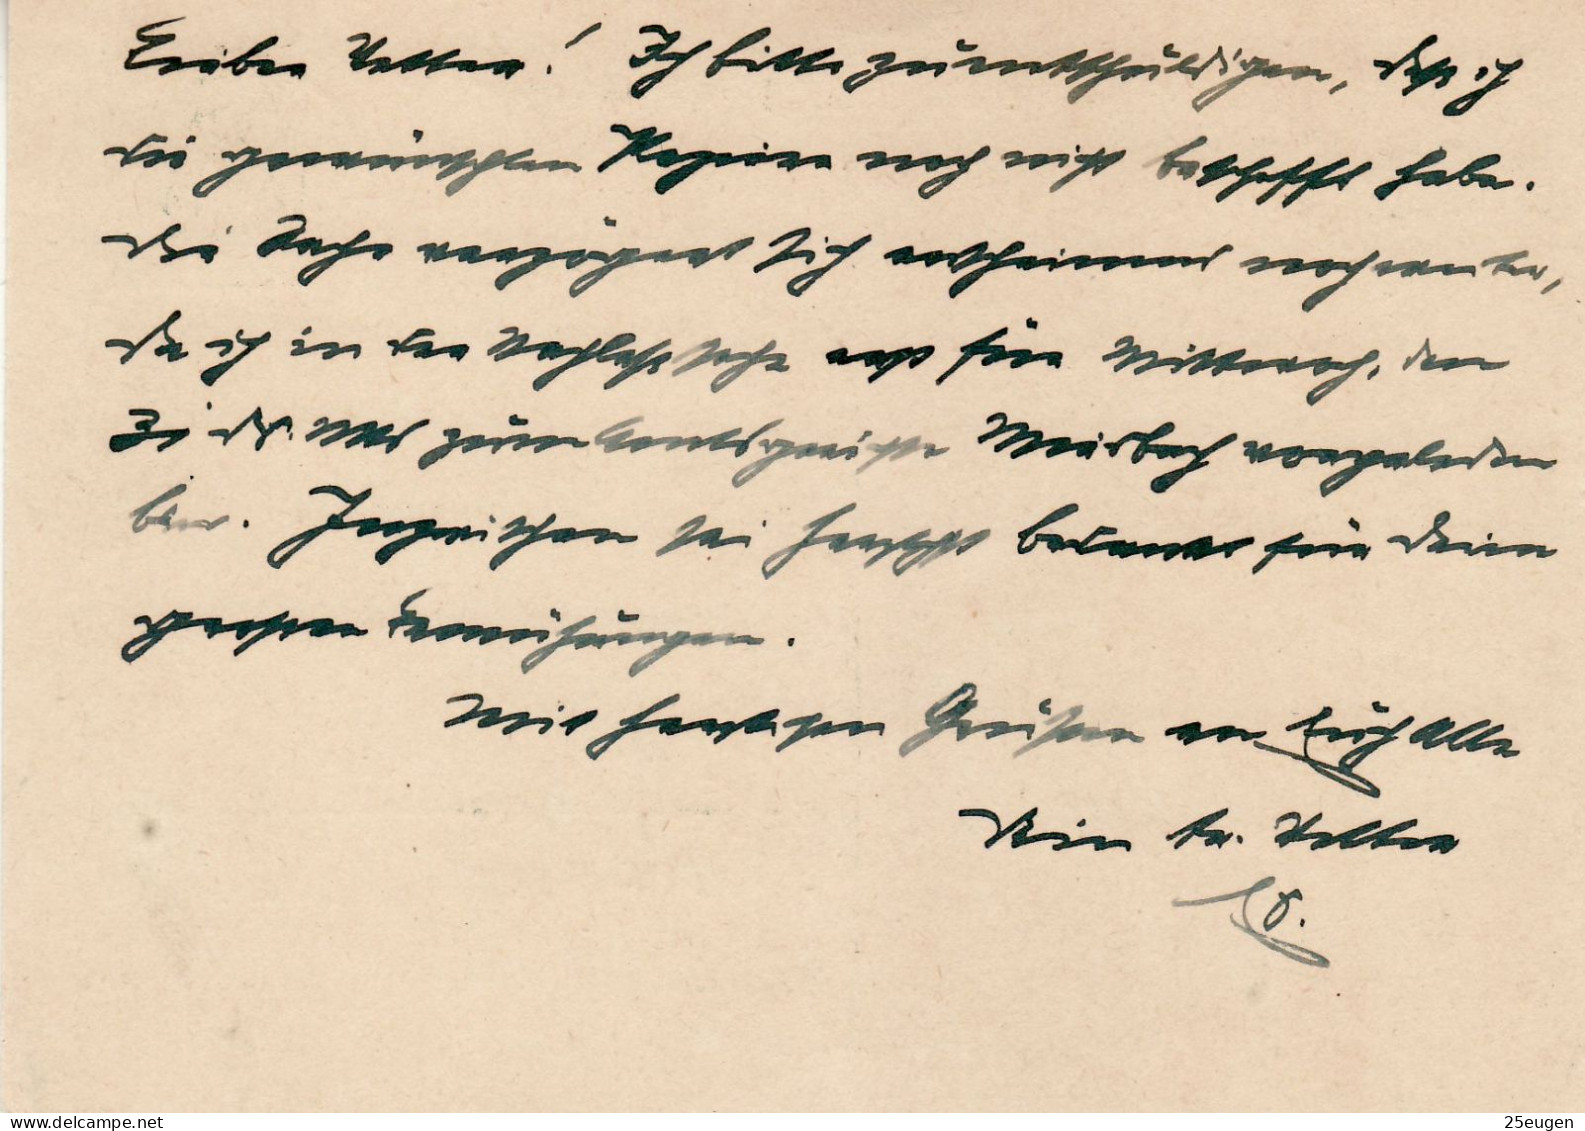 Lieber Vetter! Ich bitte zu entschuldigen, daß ich
die gewünschten Papiere noch nicht beschafft habe.
Die Sache verzögert sich anscheinend noch weiter,
da ich in der Nachlaßsache erst für Mittwoch, den
ds. Mts zum Amtsgericht vorgeladen
bin. Inzwischen sei herzlichst bedankt für Deine
großen Bemühungen.
Mit herzlichen Grüßen an Euch Alle
Dein tr. Vetter
25eugen
delcampe.net